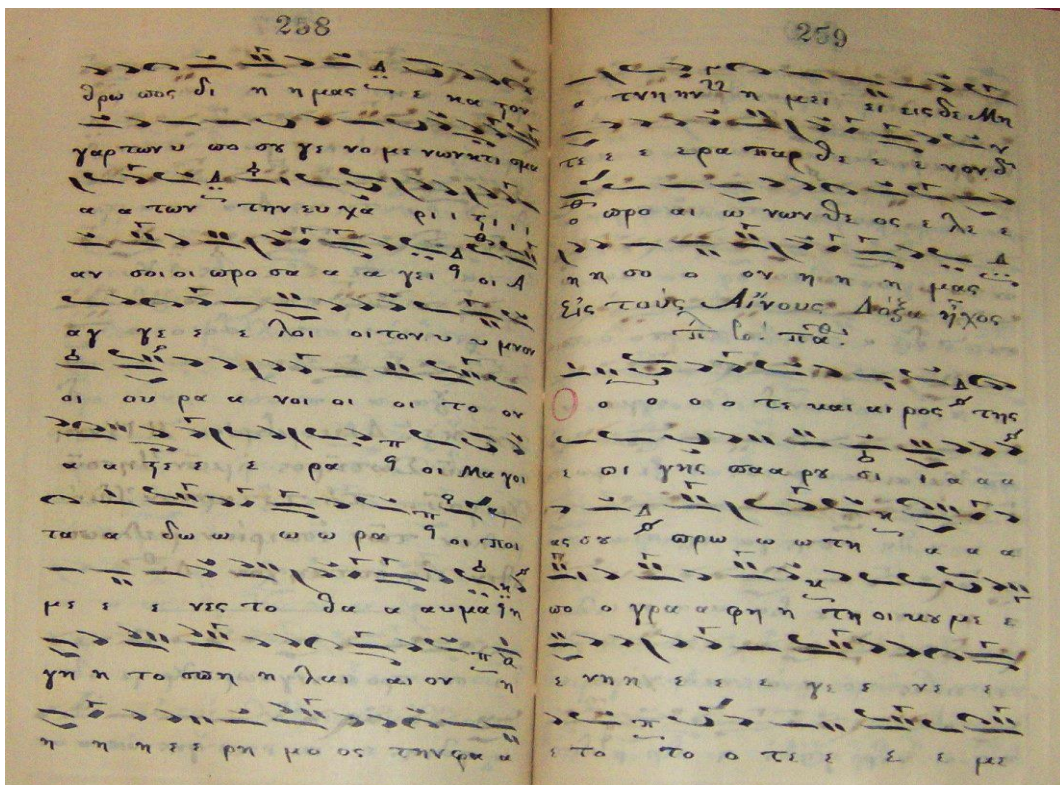 258
θρω πος δι η η μας ε κα τον
γαρ των υ πο σου γε νο με νων κτι σμα
α α των την ευ χα ρι ι τι ι ι
αν σοι οι προ σα α α γει οι Α
αγ γε ε ε λοι οι τον υ υ μνον
οι ου ρα α νοι οι οι το ον
α α τε ε ε ρα οι Μα γοι
τα α δω ω ω ω ρα οι ποι
με ε ε νες το θα α αυ μα η
γη η το σπη η λαι αι ον η
η η η ε ε ρη μο ος την φα α
259
α τνη ην η μει ει εις δε Μη
τε ε ε ε ρα παρ θε ε ε νον δ
ο προ αι ω νων θε ος ε λε ε
η η σο ο ον η η η μας
Εἰς τοὺς Αἴνους Δόξα ἦχος
ο ο ο ο τε και και ρος της
ε πι γης πα α ρου σι ι α α α
ας σου πρω ω ω τη α α α
πο ο γρα α φη η τη οι κου με ε
ε νη η ε ε ε γε ε νε ε
ε το το ο τε ε ε ε με